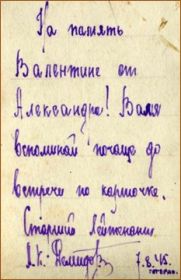 На память
Валентине от
Александра! Валя
вспоминай почаще до
встречи по карточке.
Старший лейтенант
А.К. Демидов
7.8.45.